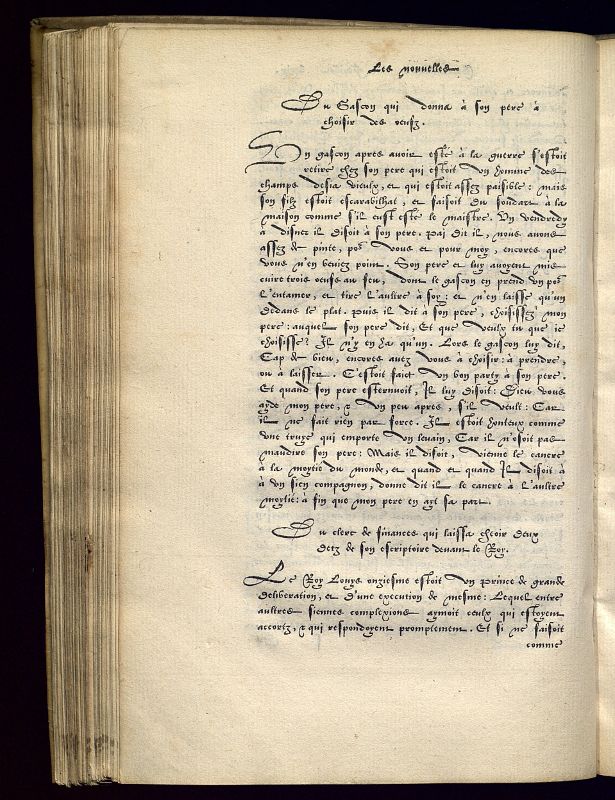 Les nouvelles
Du Gascon qui donna à son pere à
choisir des oeufz.
Un gascon apres avoir esté à la guerre s'estoit
retiré chez son pere qui estoit un homme des
champs desia vieulx, et qui estoit assez paisible : mais
son filz estoit escarabilhat, et faisoit du soudart à la
maison comme s'il eust esté le maistre. Un vendredy
à disner il disoit à son pere. Paj dit il, nous avons
assez de pinte, pour vous et pour moy, encores que
vous n'en beviez point. Son pere et luy avoyent mis
cuire trois oeufs au feu, dont le gascon en prend un pour
l'entamer, et tire l'aultre à soy : et n'en laisse qu'un
dedans le plat. Puis il dit à son pere, choisissez mon
pere : auquel son pere dit, Et que veulx tu que ie
choisisse ? Il n'y en ha qu'un. Lors le gascon luy dit,
Cap de bieu, encores avez vous à choisir : à prendre,
ou à laisser. C'estoit faict un bon party à son pere.
Et quand son pere esternuoit, Il luy disoit : Dieu vous
ayde mon pere, & un peu apres, s'il veult : Car
il ne fait rien par force. Il estoit honteux comme
une truye qui emporte un levain, Car il n'osoit pas
maudire son pere : Mais il disoit, vienne le cancre
à la moytié du monde, et quand et quand Il disoit à
à un sien compagnon, donne dit il le cancre à l'aultre
moytié : à fin que mon pere en ayt sa part.
Du clerc de finances qui laissa cheoir deux
detz de son escriptoire devant le Roy.
Le Roy Louys onziesme estoit un prince de grande
deliberation, et d'une execution de mesme : Lequel entre
aultres siennes complexions aymoit ceulx qui estoyent
accortz, & qui respondoyent promptement. Et si ne faisoit
comme